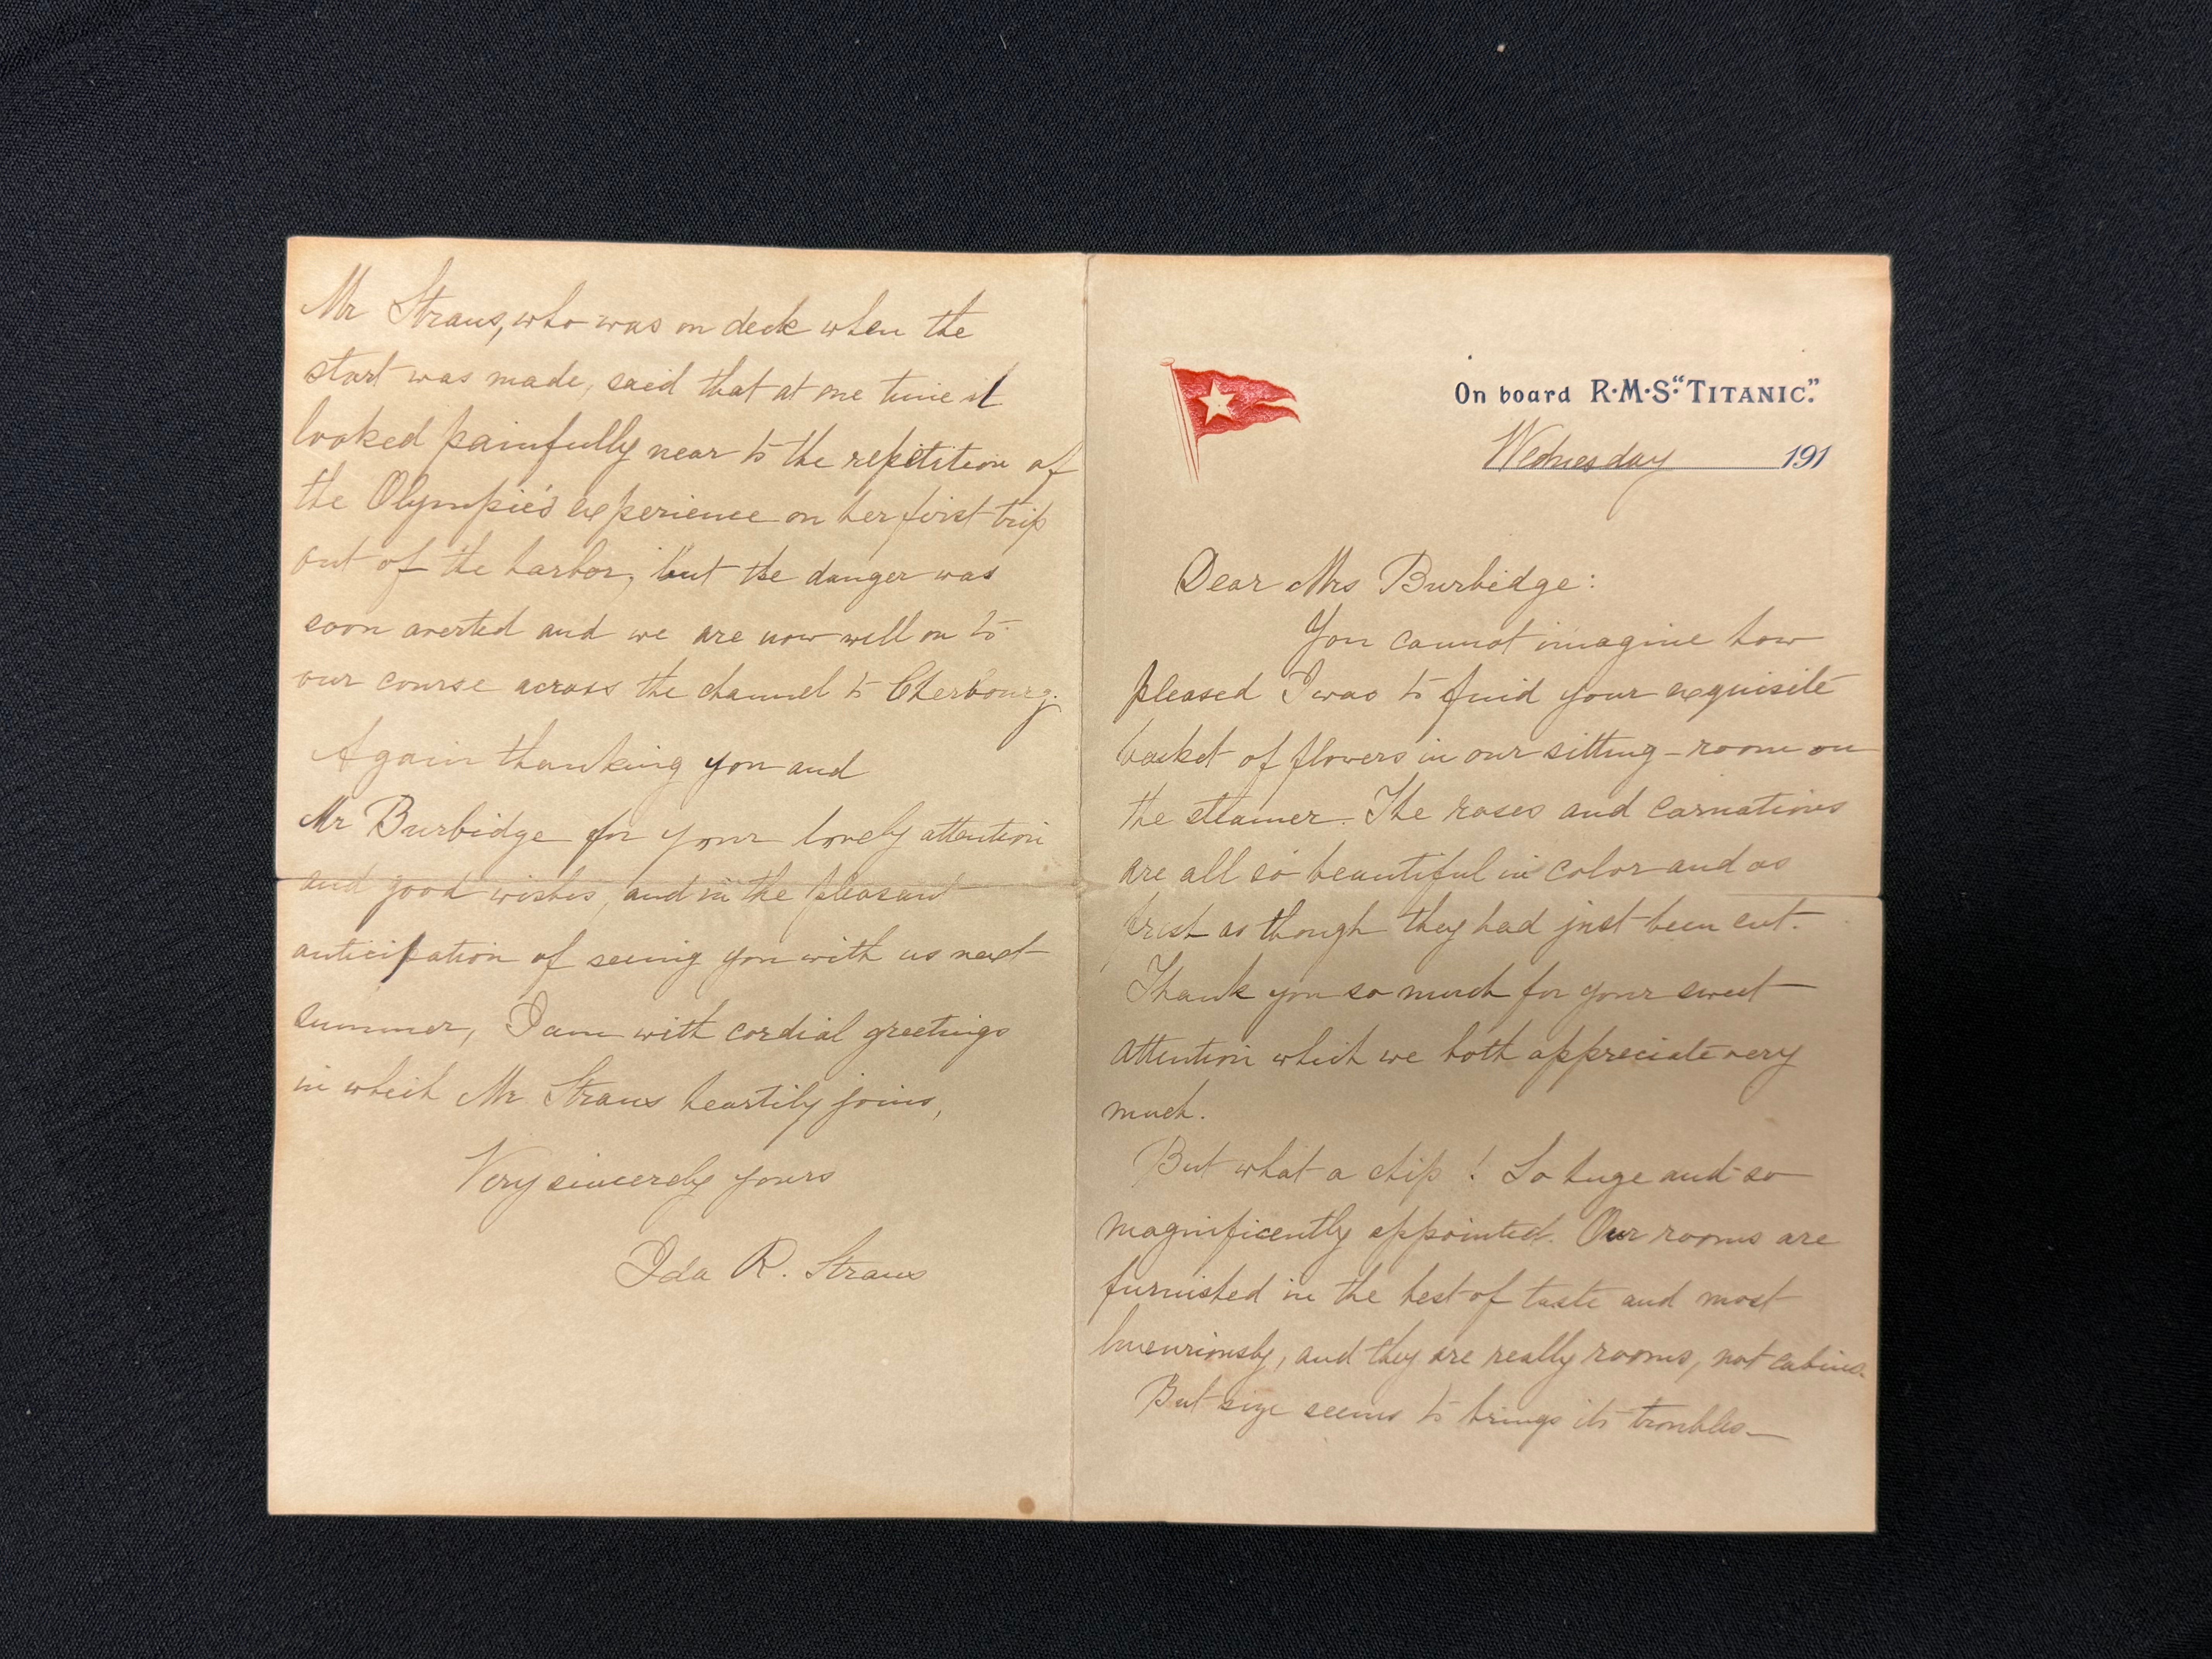 On board R·M·S·"TITANIC".
Wednesday 191
Dear Mrs Burbidge:
You cannot imagine how
pleased I was to find your exquisite
basket of flowers in our sitting-room on
the steamer. The roses and carnations
are all so beautiful in color and as
fresh as though they had just been cut.
Thank you so much for your sweet
attention which we both appreciate very
much.
But what a ship! So huge and so
magnificently appointed. Our rooms are
furnished in the best of taste and most
luxuriously, and they are really rooms, not cabins.
But size seems to bring its troubles—
Mr Straus, who was on deck when the
start was made, said that at one time it
looked painfully near to the repetition of
the Olympic's experience on her first trip
out of the harbor, but the danger was
soon averted and we are now well on to
our course across the channel to Cherbourg.
Again thanking you and
Mr Burbidge for your lovely attention
and good wishes, and in the pleasant
anticipation of seeing you with us next
summer, I am with cordial greetings
in which Mr Straus heartily joins,
Very sincerely yours
Ida R. Straus